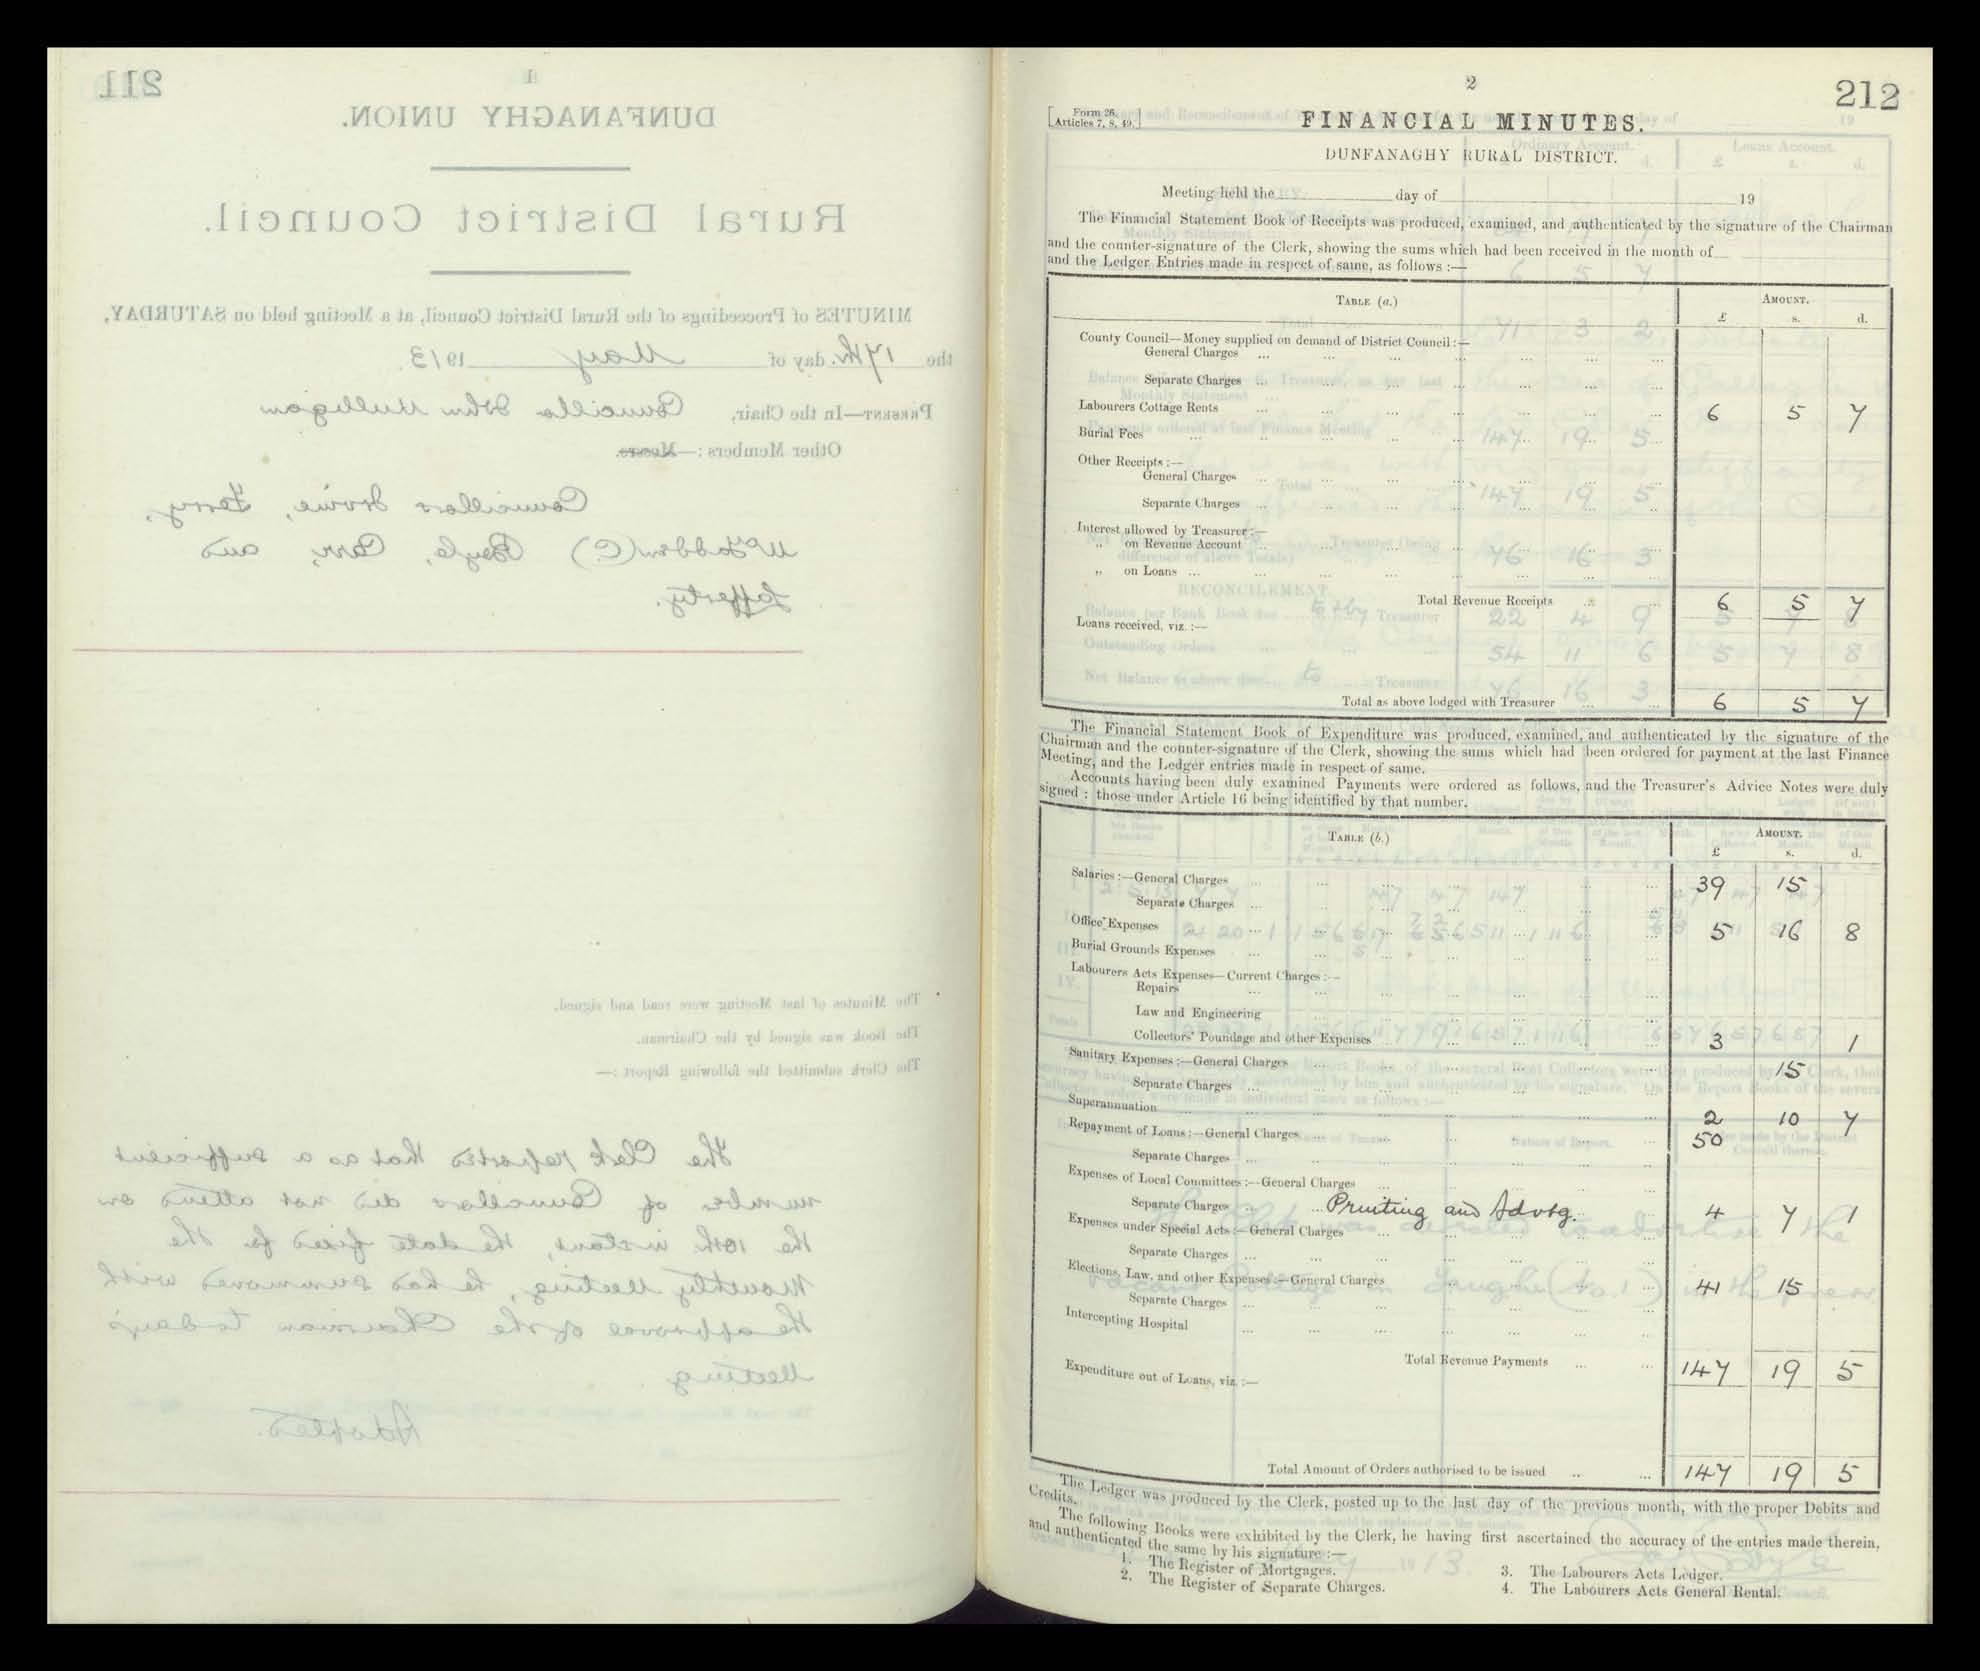 211
1
DUNFANAGHY UNION.
Rural District Council.
MINUTES of Proceedings of the Rural District Council, at a Meeting held on SATURDAY,
the 17th. day of May 1913.
PRESENT—In the Chair, Councillor John Mulligan
Other Members :—Messrs.
Councillors Irvine, Ferry,
McFadden (C) Boyle, Carr, and
Lafferty.
The Minutes of last Meeting were read and signed.
The Book was signed by the Chairman.
The Clerk submitted the following Report :—
The Clerk reported that as a sufficient
number of Councillors did not attend on
the 10th instant, the date fixed for the
Monthly Meeting, he has summoned with
the approval of the Chairman today's
Meeting
Adopted.
2
212
Form 26.
Articles 7, 8, 49.
FINANCIAL MINUTES.
DUNFANAGHY RURAL DISTRICT.
Meeting held the day of 19
The Financial Statement Book of Receipts was produced, examined, and authenticated by the signature of the Chairman
and the counter-signature of the Clerk, showing the sums which had been received in the month of
and the Ledger Entries made in respect of same, as follows :—
TABLE (a.) AMOUNT.
£ s. d.
County Council—Money supplied on demand of District Council :—
General Charges
Separate Charges
Labourers Cottage Rents 6 5 7
Burial Fees
Other Receipts :—
General Charges
Separate Charges
Interest allowed by Treasurer :—
„ on Revenue Account
„ on Loans
Total Revenue Receipts 6 5 7
Loans received, viz. :—
Total as above lodged with Treasurer 6 5 7
The Financial Statement Book of Expenditure was produced, examined, and authenticated by the signature of the
Chairman and the counter-signature of the Clerk, showing the sums which had been ordered for payment at the last Finance
Meeting, and the Ledger entries made in respect of same.
Accounts having been duly examined Payments were ordered as follows, and the Treasurer's Advice Notes were duly
signed : those under Article 16 being identified by that number.
TABLE (b.) AMOUNT.
£ s. d.
Salaries :—General Charges 39 15
Separate Charges
Office Expenses 5 16 8
Burial Grounds Expenses
Labourers Acts Expenses—Current Charges :—
Repairs
Law and Engineering
Collectors' Poundage and other Expenses 3 1
Sanitary Expenses :—General Charges 15
Separate Charges
Superannuation 2 10 7
Repayment of Loans :—General Charges 50
Separate Charges
Expenses of Local Committees :—General Charges
Separate Charges Printing and Advtg. 4 7 1
Expenses under Special Acts :—General Charges
Separate Charges
Elections, Law, and other Expenses :—General Charges 41 15
Separate Charges
Intercepting Hospital
Total Revenue Payments 147 19 5
Expenditure out of Loans, viz. :—
Total Amount of Orders authorised to be issued 147 19 5
The Ledger was produced by the Clerk, posted up to the last day of the previous month, with the proper Debits and
Credits.
The following Books were exhibited by the Clerk, he having first ascertained the accuracy of the entries made therein,
and authenticated the same by his signature :—
1. The Register of Mortgages.
2. The Register of Separate Charges.
3. The Labourers Acts Ledger.
4. The Labourers Acts General Rental.